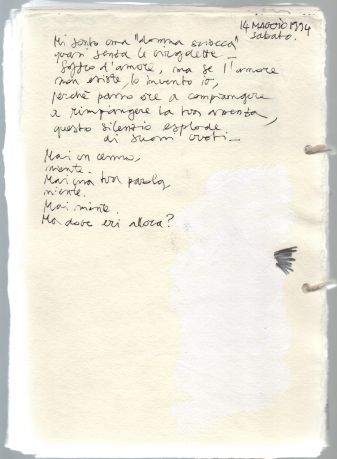 14 MAGGIO 1994
sabato.
Mi sento una "donna sciocca"
quasi senza le virgolette –
Soffro d'amore, ma se l'amore
non esiste lo invento io,
perché passo ore a compiangere
a rimpiangere la tua assenza,
questo silenzio esplode
di suoni vuoti –
Mai un cenno,
niente.
Mai una tua parola,
niente.
Mai niente.
Ma dove eri allora?